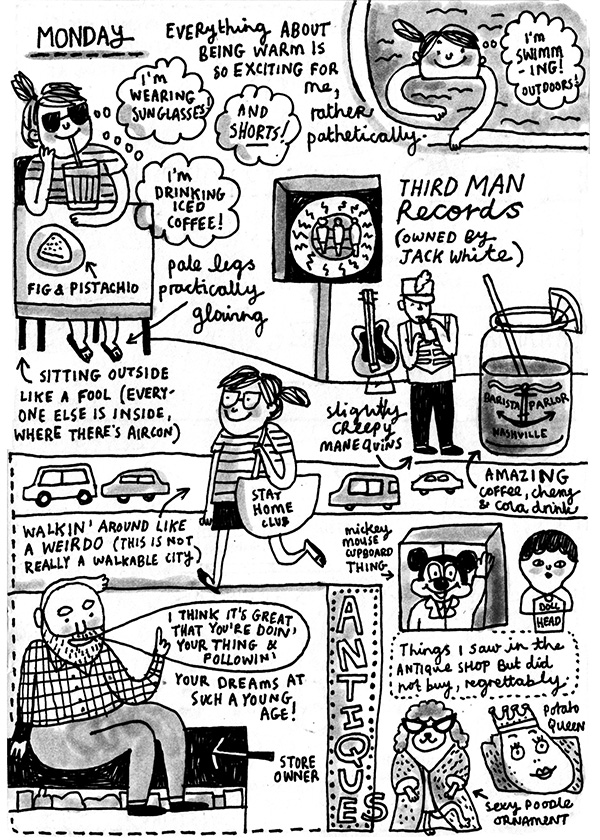 MONDAY
EVERYTHING ABOUT
BEING WARM IS
SO EXCITING FOR
me,
rather
pathetically.
I'M
SWIMM
-ING!
OUTDOORS!
I'M
WEARING
SUNGLASSES!
AND
SHORTS!
I'M
DRINKING
ICED
COFFEE!
FIG & PISTACHIO
pale legs
practically
gloiwng
SITTING OUTSIDE
LIKE A FOOL (EVERY-
ONE ELSE IS INSIDE,
WHERE THERE'S AIRCON)
THIRD MAN
Records
(OWNED BY
JACK WHITE)
slightly
creepy
MANEQUINS
BARISTA PARLOR
NASHVILLE
AMAZING
COFFEE, cherry
& cola drink
STAY
HOME
CLUB
WALKIN' AROUND LIKE
A WEIRDO (THIS IS NOT
REALLY A WALKABLE CITY)
mickey
MOUSE
CUPBOARD
THING
DOLL
HEAD
Things I saw in the
ANTIQUE SHOP BUT did
not buy, regrettably.
I THINK IT'S GREAT
THAT YOU'RE DOIN'
YOUR THING &
FOLLOWIN'
YOUR DREAMS AT
SUCH A YOUNG
AGE!
STORE
OWNER
ANTIQUES
Potato
Queen
sexy POODLE
ORNAMENT